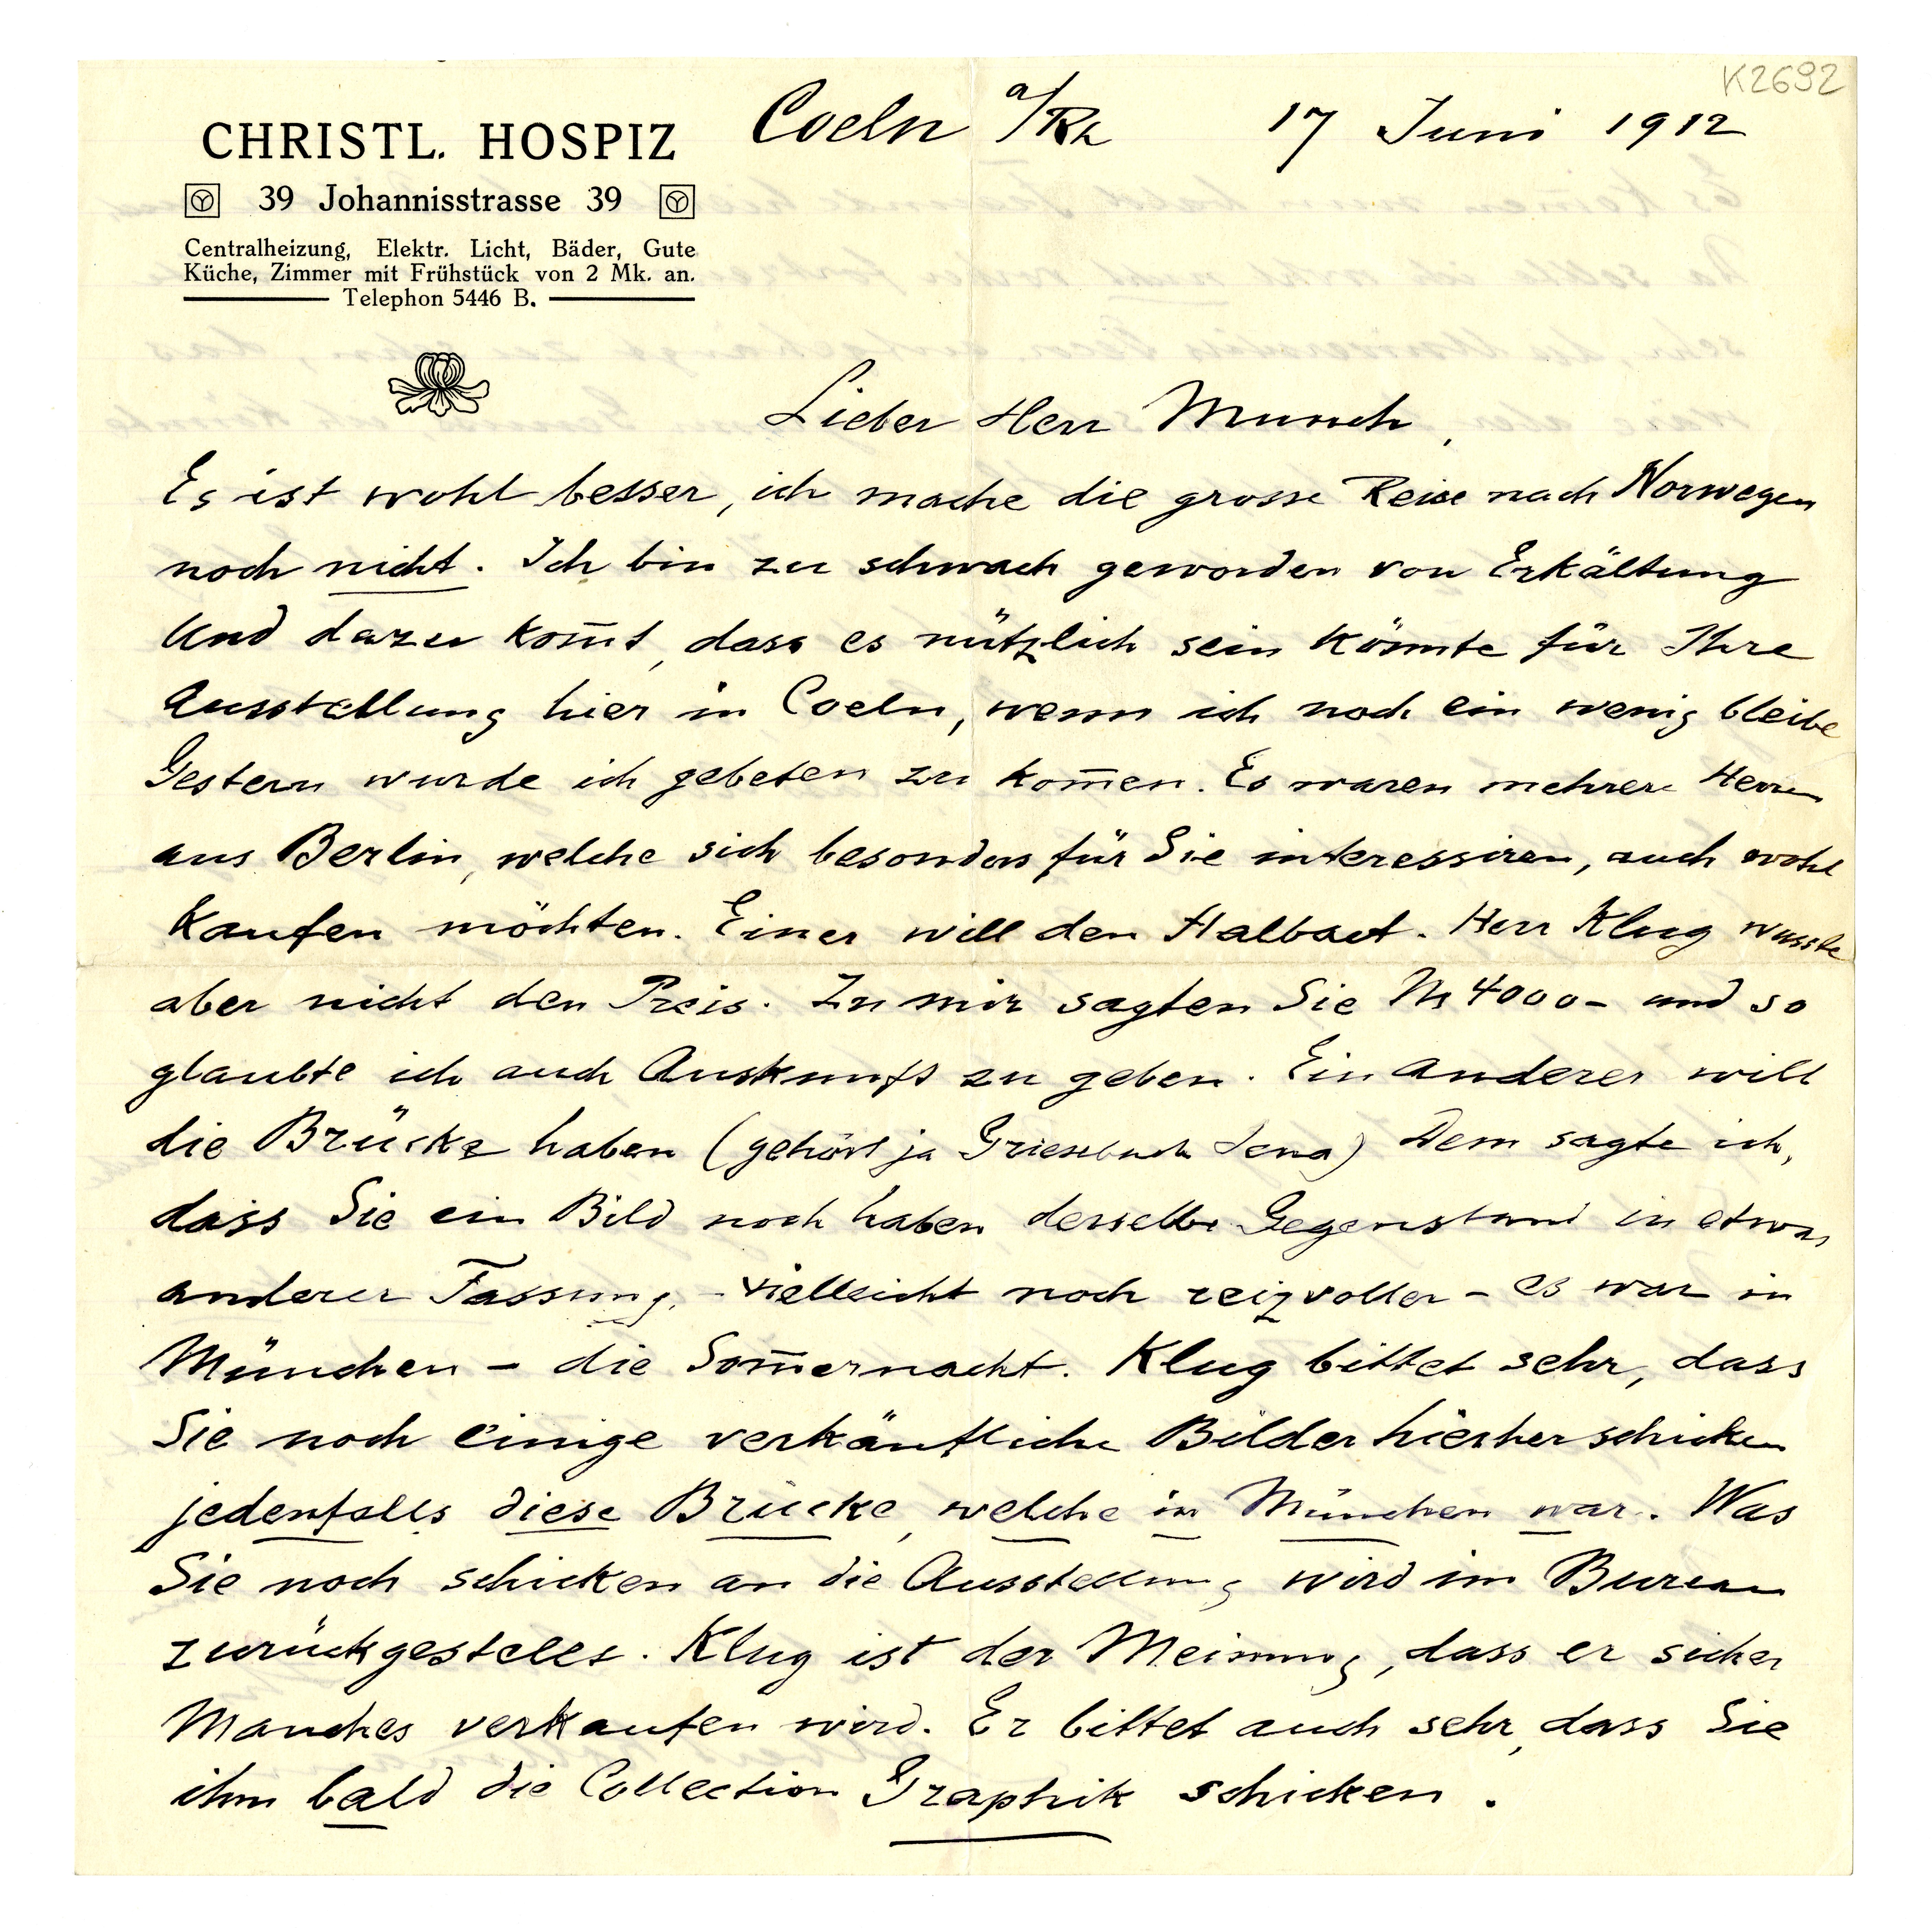 K2692
CHRISTL. HOSPIZ
39 Johannisstrasse 39
Centralheizung, Elektr. Licht, Bäder, Gute
Küche, Zimmer mit Frühstück von 2 Mk. an.
Telephon 5446 B.
Coeln a/Rh 17 Juni 1912
Lieber Herr Munch,
Es ist wohl besser, ich mache die grosse Reise nach Norwegen
noch nicht. Ich bin zu schwach geworden von Erkältung
Und dazu kom̅t, dass es nützlich sein könnte für Ihre
Ausstellung hier in Coeln, wenn ich noch ein wenig bleibe
Gestern wurde ich gebeten zu kom̅en. Es waren mehrere Herren
aus Berlin, welche sich besonders für Sie interessiren, auch wohl
kaufen möchten. Einer will den Halbact. Herr Klug wusste
aber nicht den Preis. Zu mir sagten Sie M 4000- und so
glaubte ich auch Auskunft zu geben. Ein Anderer will
die Brücke haben (gehört ja Griesebach Jena) Dem sagte ich,
dass Sie ein Bild noch haben derselbe Gegenstand in etwas
anderer Fassung, - vielleicht noch reizvoller - es war in
München - die Som̅ernacht. Klug bittet sehr, dass
Sie noch einige verkäufliche Bilder hierher schicken
jedenfalls diese Brücke, welche in München war. Was
Sie noch schicken an die Ausstellung wird im Bureau
zurückgestellt. Klug ist der Meinung, dass er sicher
Manches verkaufen wird. Er bittet auch sehr, dass Sie
ihm bald die Collection Graphik schicken.